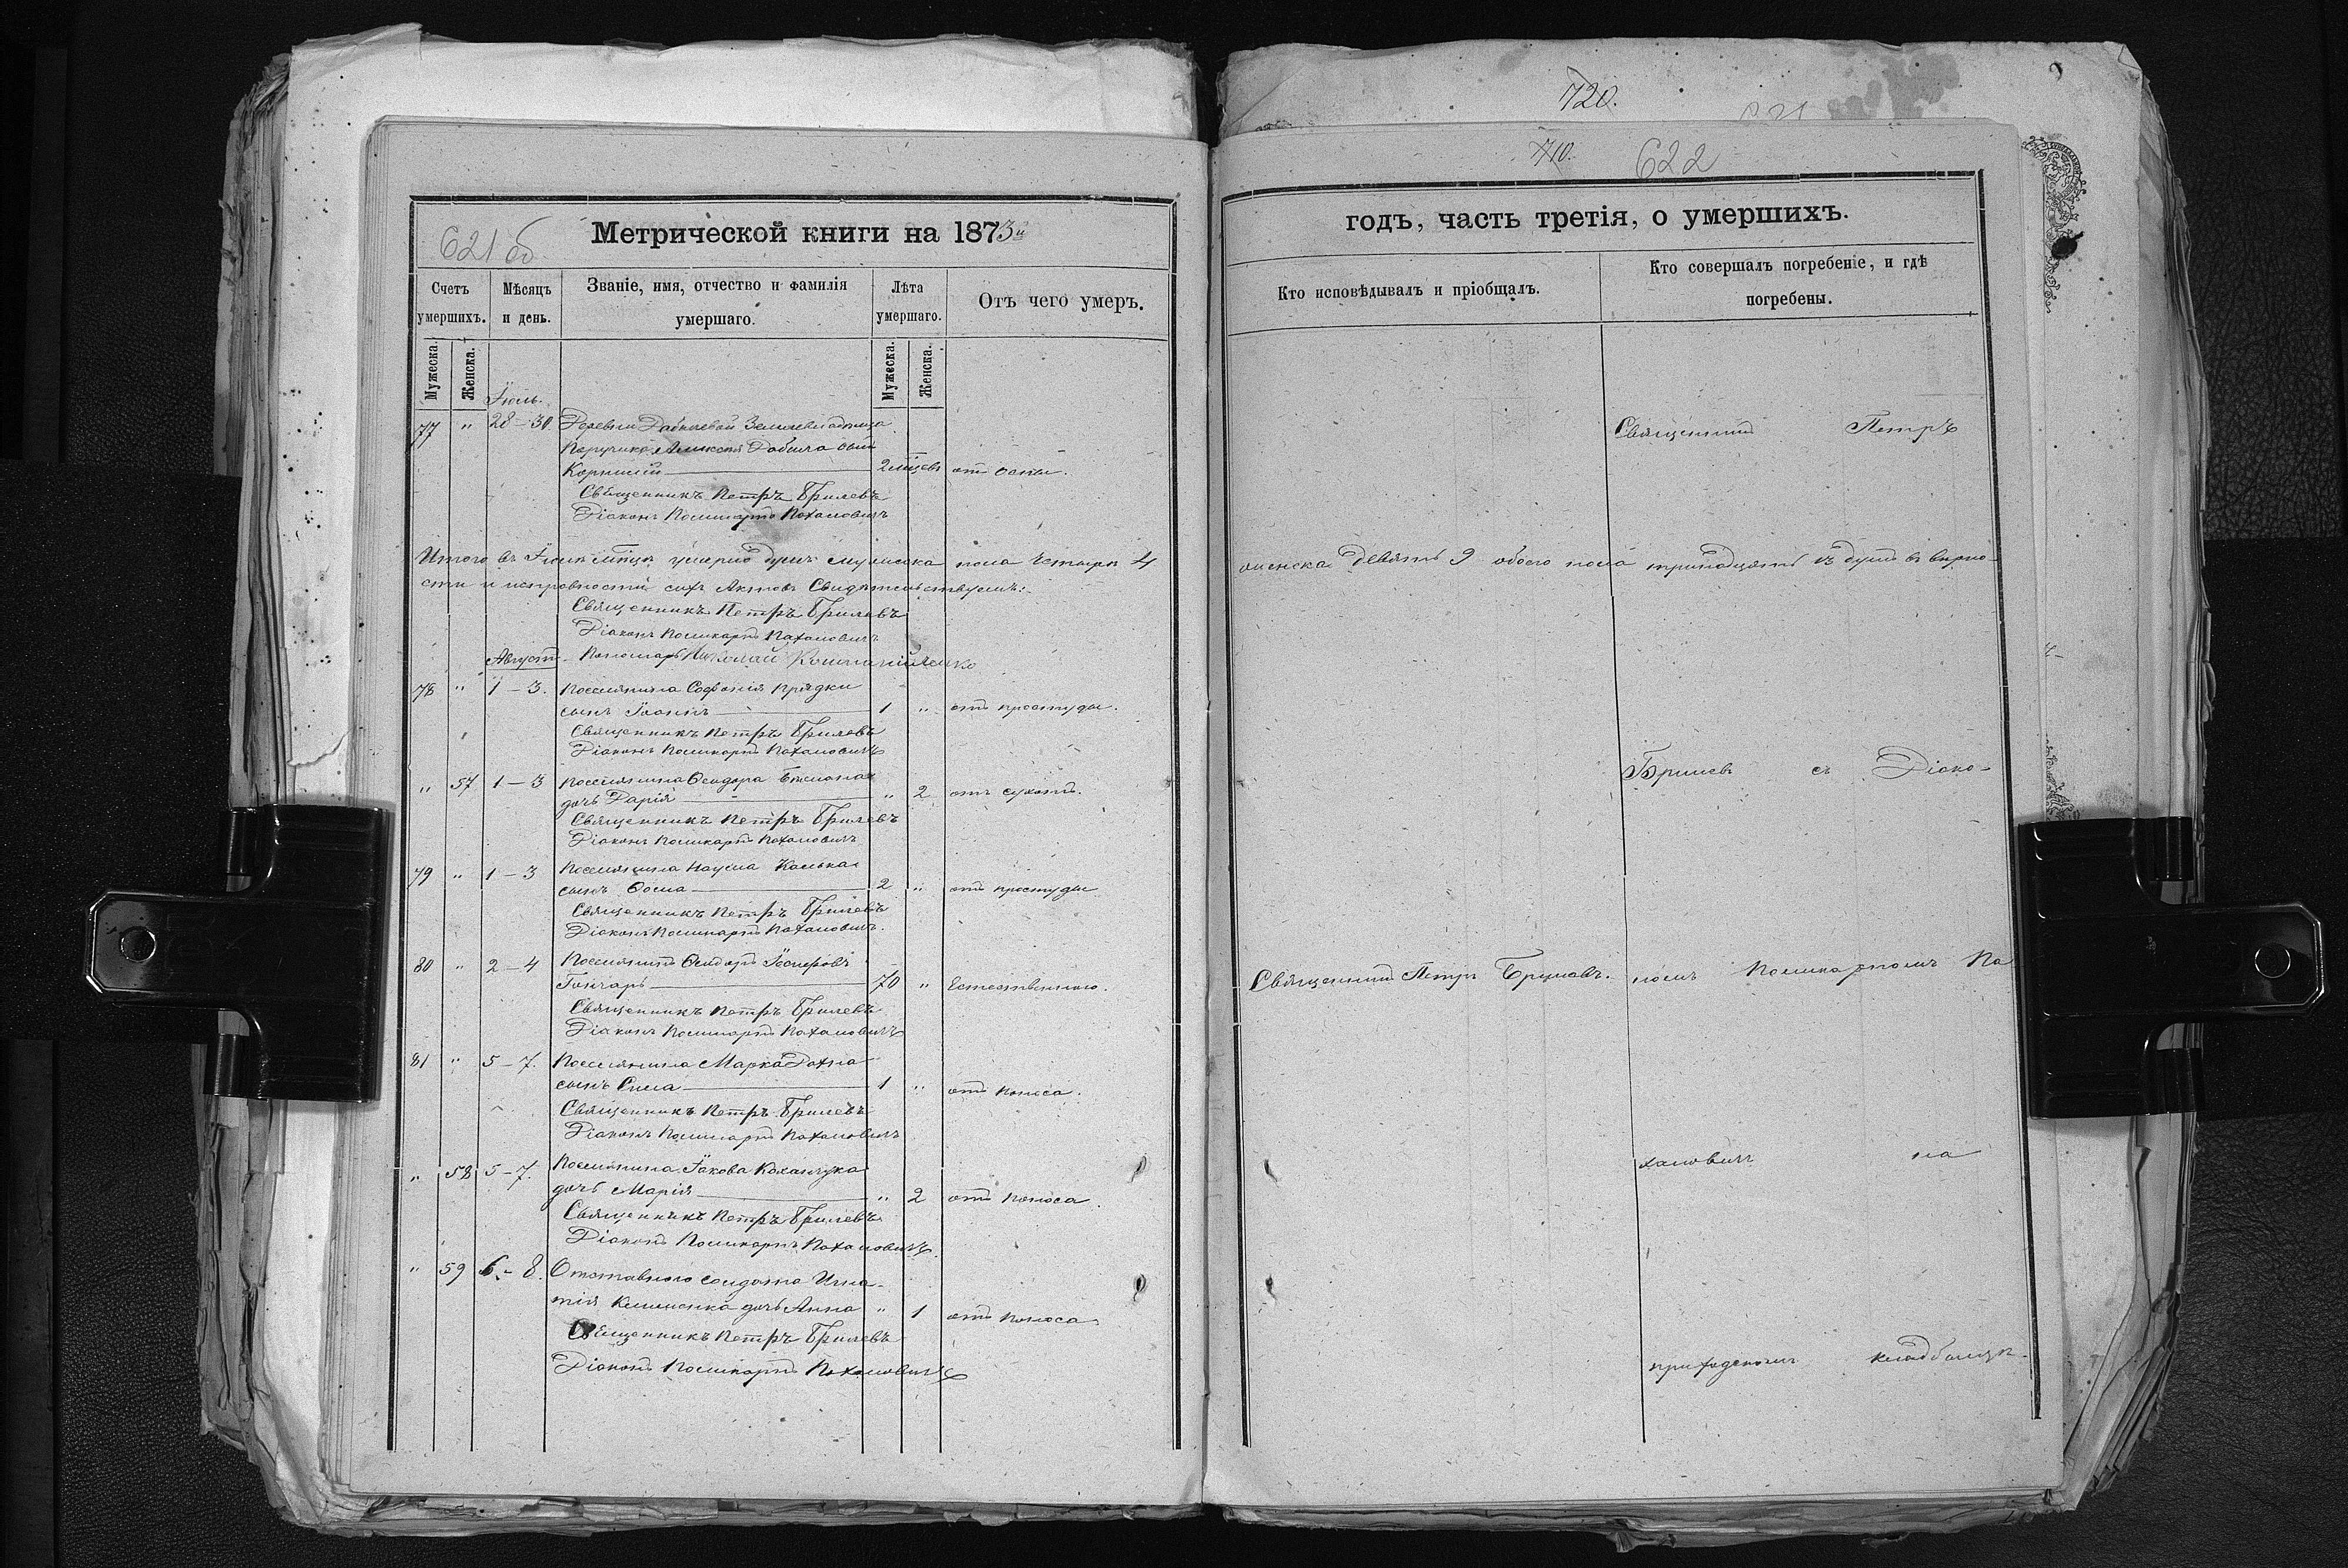 720.
710.
622
621 об.
Метрической книги на 1873й
годъ, часть третія, о умершихъ.
Счетъ умершихъ.
Мѣсяцъ и день.
Званіе, имя, отчество и фамилія умершаго.
Лѣта умершаго.
Отъ чего умеръ.
Кто исповѣдывалъ и пріобщалъ.
Кто совершалъ погребеніе, и гдѣ погребены.
Мужеска.
Женска.
Мужеска.
Женска.
Іюль.
77 " 28-30. Деревни
Поручика Алексѣя сынъ
2 мѣсец. отъ оспы.
Священникъ Петръ Брилевъ
Діаконъ Поликарпъ Пахаловичъ
Итого въ Іюлѣ мѣсяцѣ умерло душъ мужеска пола четыри 4
женска девять 9 обоего пола тринадцать 13 душъ в вѣрно-
сти и исправности сихъ Актовъ Свидѣтельствуемъ:
Священникъ Петръ Брилевъ
Діаконъ Поликарпъ Пахаловичъ
Пономарь Николай
Августъ
78 " 1-3. Поселянина Софонія Прядки
сынъ Іоаннъ 1 " отъ простуды.
Священникъ Петръ Брилевъ
Діаконъ Поликарпъ Пахаловичъ
" 57 1-3 Поселянина Ѳеодора
дочь Дарія " 2 отъ сухотъ.
Священникъ Петръ Брилевъ
Діаконъ Поликарпъ Пахаловичъ
79 " 1-3 Поселянина Наума
сынъ Ѳома 2 " отъ простуды
Священникъ Петръ Брилевъ
Діаконъ Поликарпъ Пахаловичъ.
80 " 2-4 Поселянинъ
Гончаръ 70 " Естественно.
Священникъ Петръ Брилевъ
Діаконъ Поликарпъ Пахаловичъ
81 " 5-7. Поселянина Марка
сынъ Сила 1 " отъ поноса.
Священникъ Петръ Брилевъ
Діаконъ Поликарпъ Пахаловичъ
" 58 5-7. Поселянина Іакова
дочь Марія " 2 отъ поноса.
Священникъ Петръ Брилевъ
Діаконъ Поликарпъ Пахаловичъ.
" 59 6-8. Отставного солдата Игна-
тія дочь Анна " 1 отъ поноса.
Священникъ Петръ Брилевъ
Діаконъ Поликарпъ Пахаловичъ
Священникъ Петръ Брилевъ.
Священникъ Петръ
Брилевъ съ Діако-
номъ Поликарпомъ Па
халовичъ на
приходскомъ кладбищѣ.